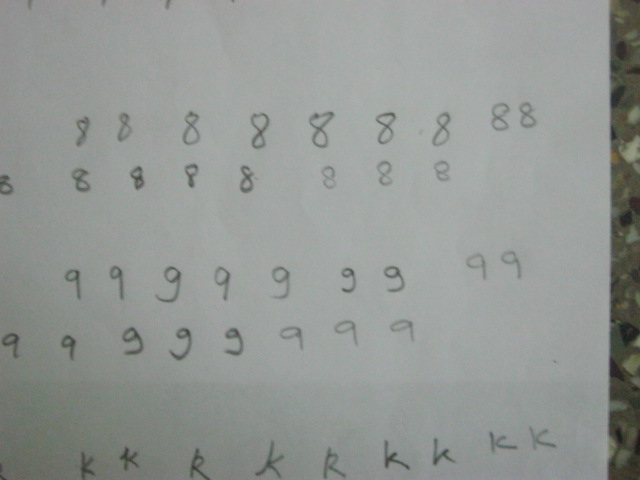 8 8 8 8 8 8 8 8 8
8 8 8 8 8 8 8 8
9 9 9 9 9 9 9 9 9
9 9 9 9 9 9 9 9
k k k k k k k k k